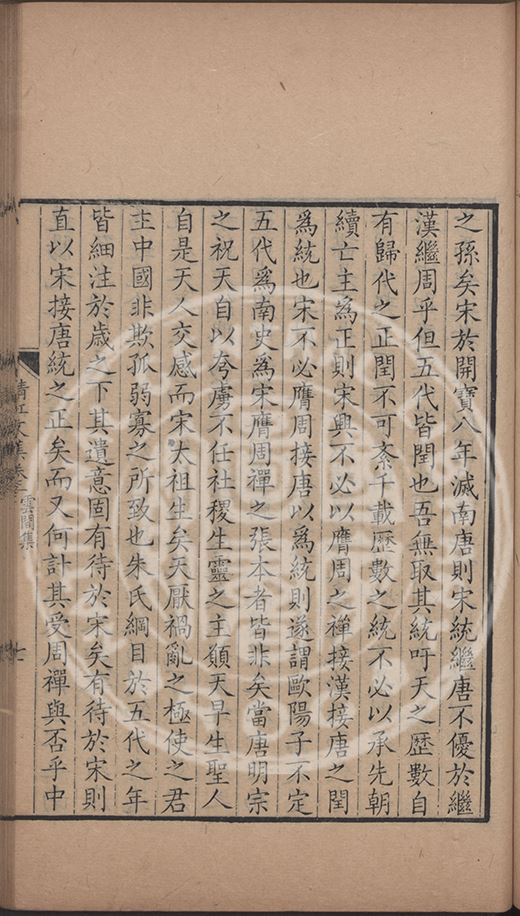 之孫矣宋於開寶八年滅南唐則宋統繼唐不優於繼
漢繼周乎但五代皆閏也吾無取其統吁天之歷數自
有歸代之正閏不可紊千載歷數之統不必以承先朝
續亡主爲正則宋興不必以膺周之禪接漢接唐之閏
爲統也宋不必膺周接唐以爲統則遂謂歐陽子不定
五代爲南史爲宋膺周禪之張本者皆非矣當唐明宗
之祝天自以夸虜不任社稷生靈之主願天早生聖人
自是天人交感而宋太祖生矣天厭禍亂之極使之君
主中國非欺孤弱寡之所致也朱氏綱目於五代之年
皆細注於歲之下其遺意固有待於宋矣有待於宋則
直以宋接唐統之正矣而又何計其受周禪與否乎中
雲間集